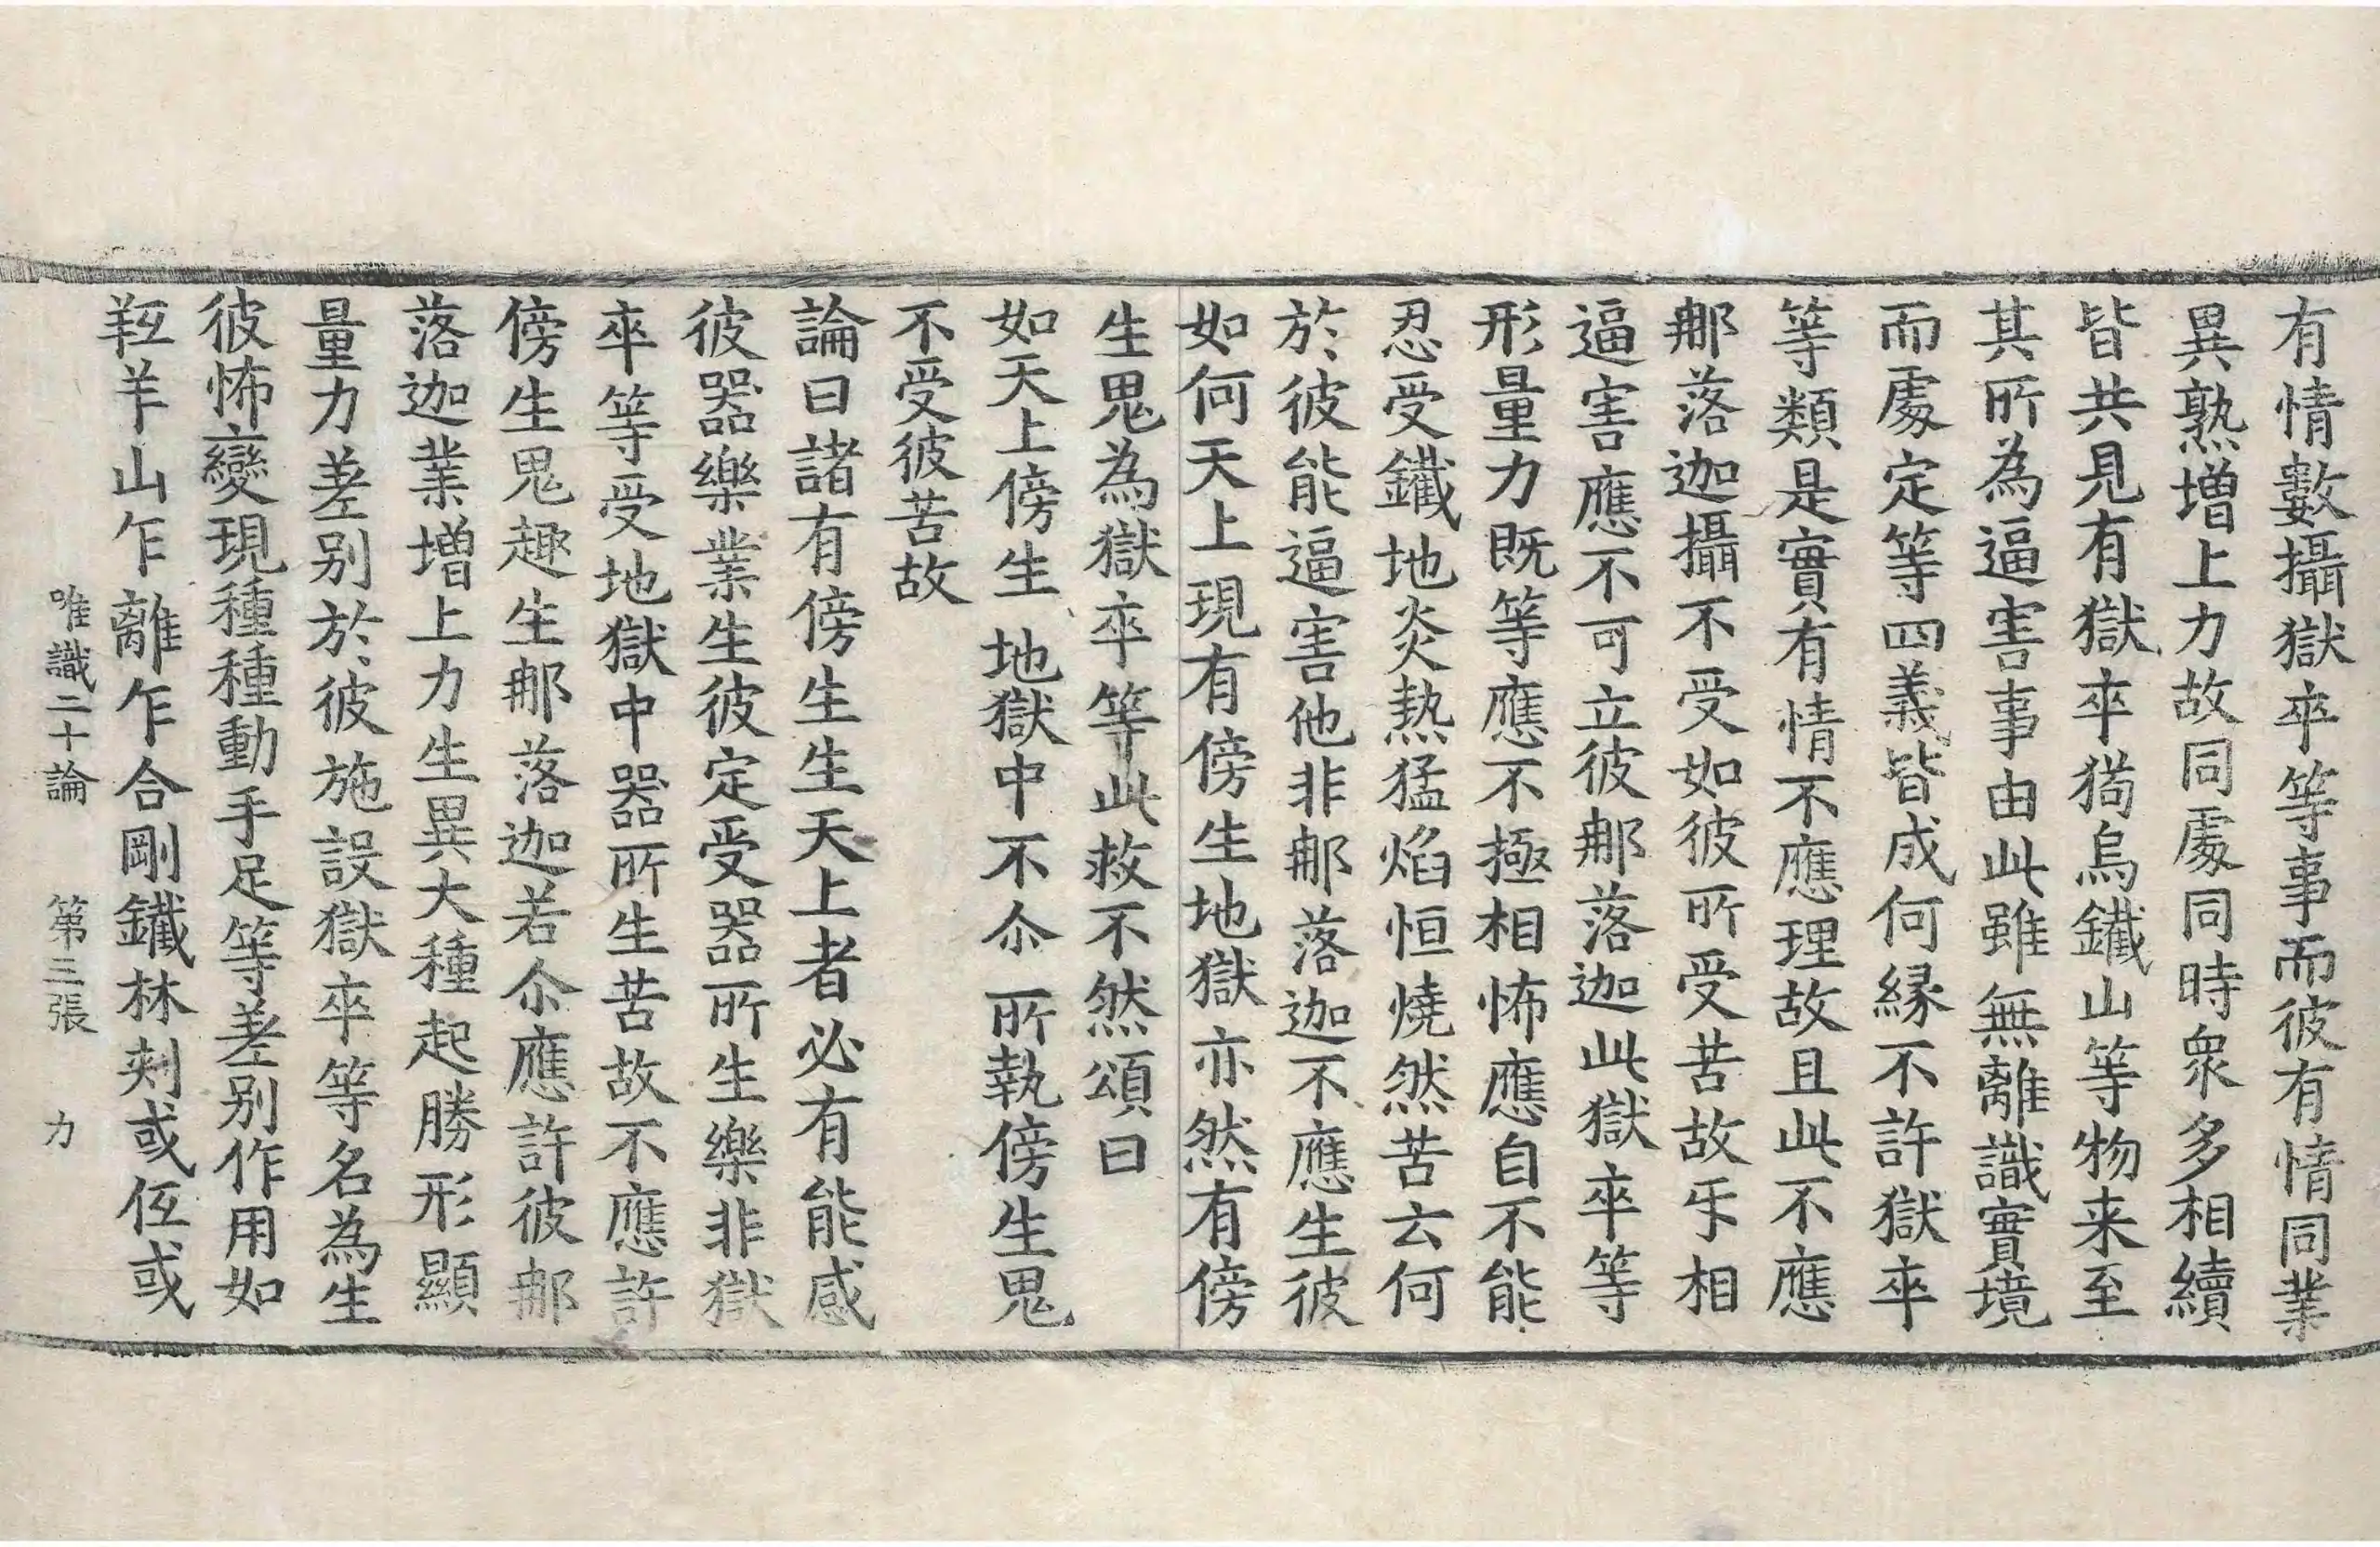 有情數攝獄卒等事而彼有情同業
異熟增上力故同處同時衆多相續
皆共見有獄卒猘烏鐵山等物来至
其所為逼害事由此雖無離識實境
而處定等四義皆成何縁不許獄卒
等類是實有情不應理故且此不應
那落迦攝不受如彼所受苦故𠄔相
逼害應不可立彼那落迦此獄卒等
形量力既等應不極相怖應自不能
忍受鐵地炎熱猛焰恒燒然苦云何
於彼能逼害他非那落迦不應生彼
如何天上現有傍生地獄亦然有傍
生鬼為獄卒等此救不然頌曰
如天上傍生 地獄中不尒 所執傍生鬼
不受彼苦故
論曰諸有傍生生天上者必有能感
彼器樂業生彼定受器所生樂非獄
卒等受地獄中器所生苦故不應許
傍生鬼趣生那落迦若尒應許彼那
落迦業增上力生異大種起勝形顯
量力差别於彼施設獄卒等名為生
彼怖變現種種動手足等差别作用如
羝羊山乍離乍合剛鐵林刺或低或
唯識二十論 第三張 力